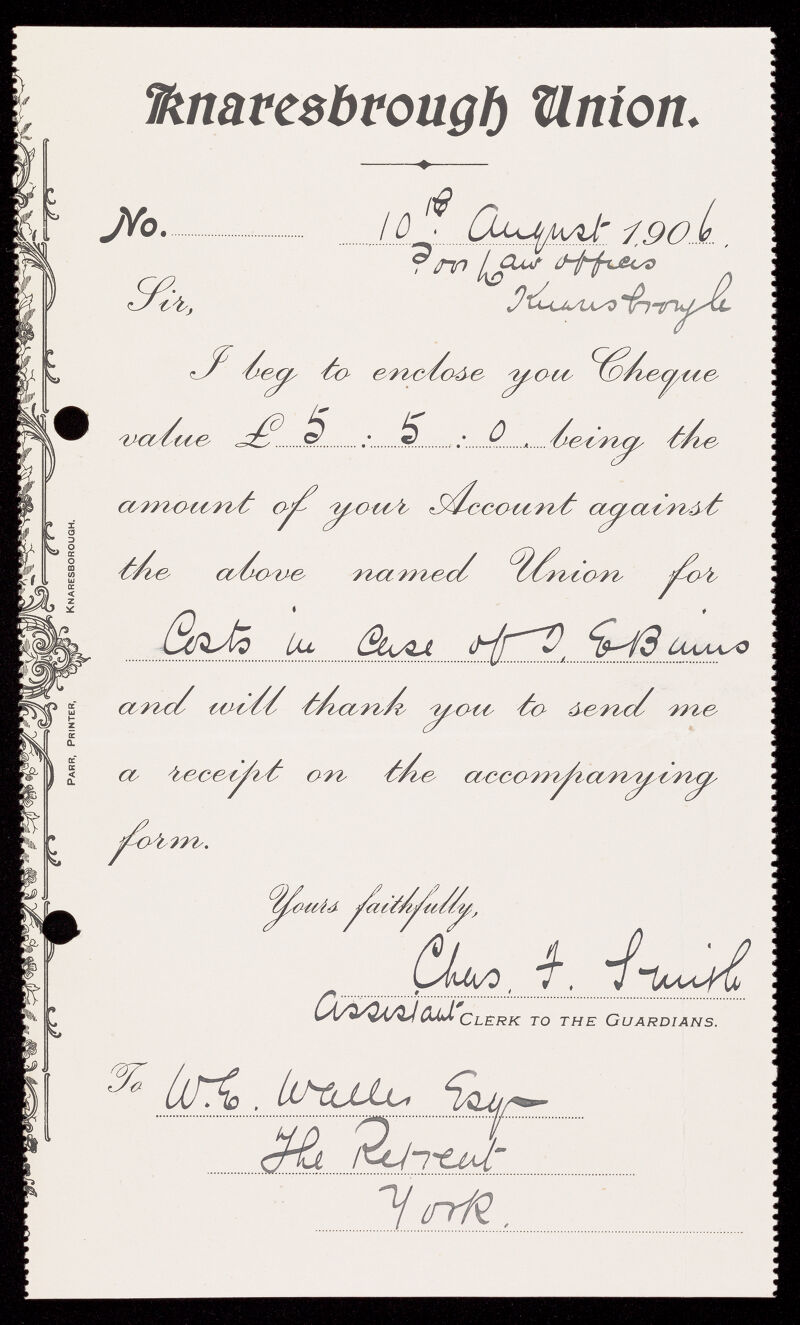 Knaresbrough Union.
No. 10th August 1906.
Poor Law Offices
Knaresbrough
Sir,
I beg to enclose you Cheque
value £ 5 : 5 : 0. being the
amount of your Account against
the above named Union for
Costs in Case of I. E Bains
and will thank you to send me
a receipt on the accompanying
form.
Yours faithfully,
Chas. F. Smith
Assistant CLERK TO THE GUARDIANS.
To W.E. Waller Esq
The Retreat
York.
PARR, PRINTER, KNARESBOROUGH.